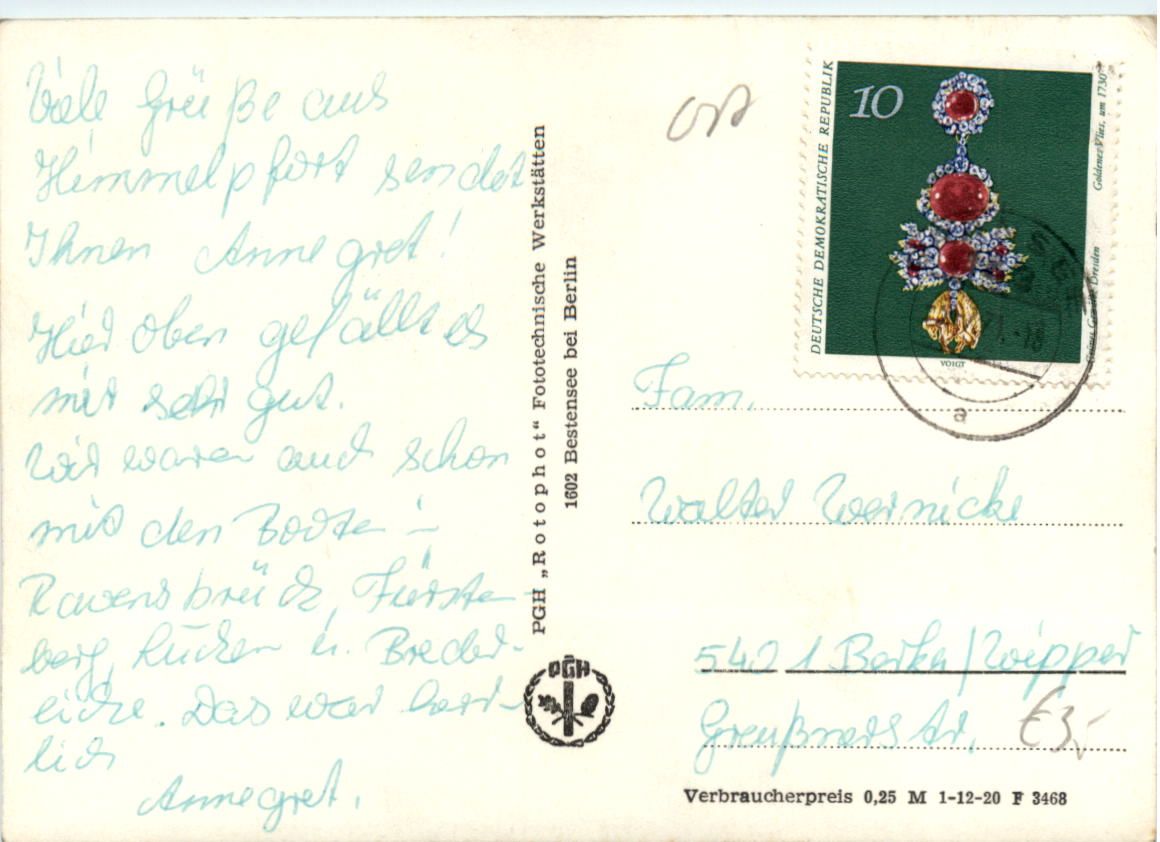 Viele Grüße aus
Himmelpfort sendet
Ihnen Annegret!
Hier oben gefällt es
mir sehr gut.
Wir waren auch schon
mit den Booten in
Ravensbrück, Fürsten-
berg, Lychen u. Breder-
eiche. Das war herr-
lich
Annegret.
PGH „Rotophot“ Fototechnische Werkstätten
1602 Bestensee bei Berlin
PGH
Ost
DEUTSCHE DEMOKRATISCHE REPUBLIK
10
Goldenes Vlies, um 1730
Dresden
VOIGT
a
Fam.
Walter Wernicke
5421 Berka/Wipper
Greußnerstr.
€3,-
Verbraucherpreis 0,25 M 1-12-20 F 3468